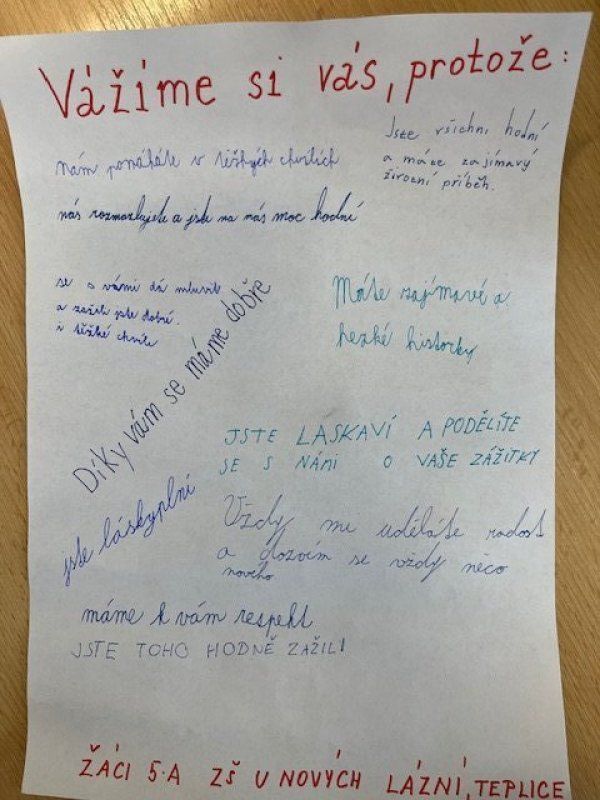 Vážíme si vás, protože:
Jste všichni hodní
a máte zajímavý
životní příběh.
nám pomáháte v těžkých chvílích
nás rozmazlujete a jste na nás moc hodní
se s vámi dá mluvit
a zažili jste dobré
i těžké chvíle
Máte zajímavé a
hezké historky
Díky vám se máme dobře
JSTE LASKAVÍ A PODĚLÍTE
SE S NÁMI O VAŠE ZÁŽITKY
jste láskyplní
Vždy mi uděláte radost
a dozvím se vždy něco
nového
máme k vám respekt
JSTE TOHO HODNĚ ZAŽILI
ŽÁCI 5.A ZŠ U NOVÝCH LÁZNÍ, TEPLICE